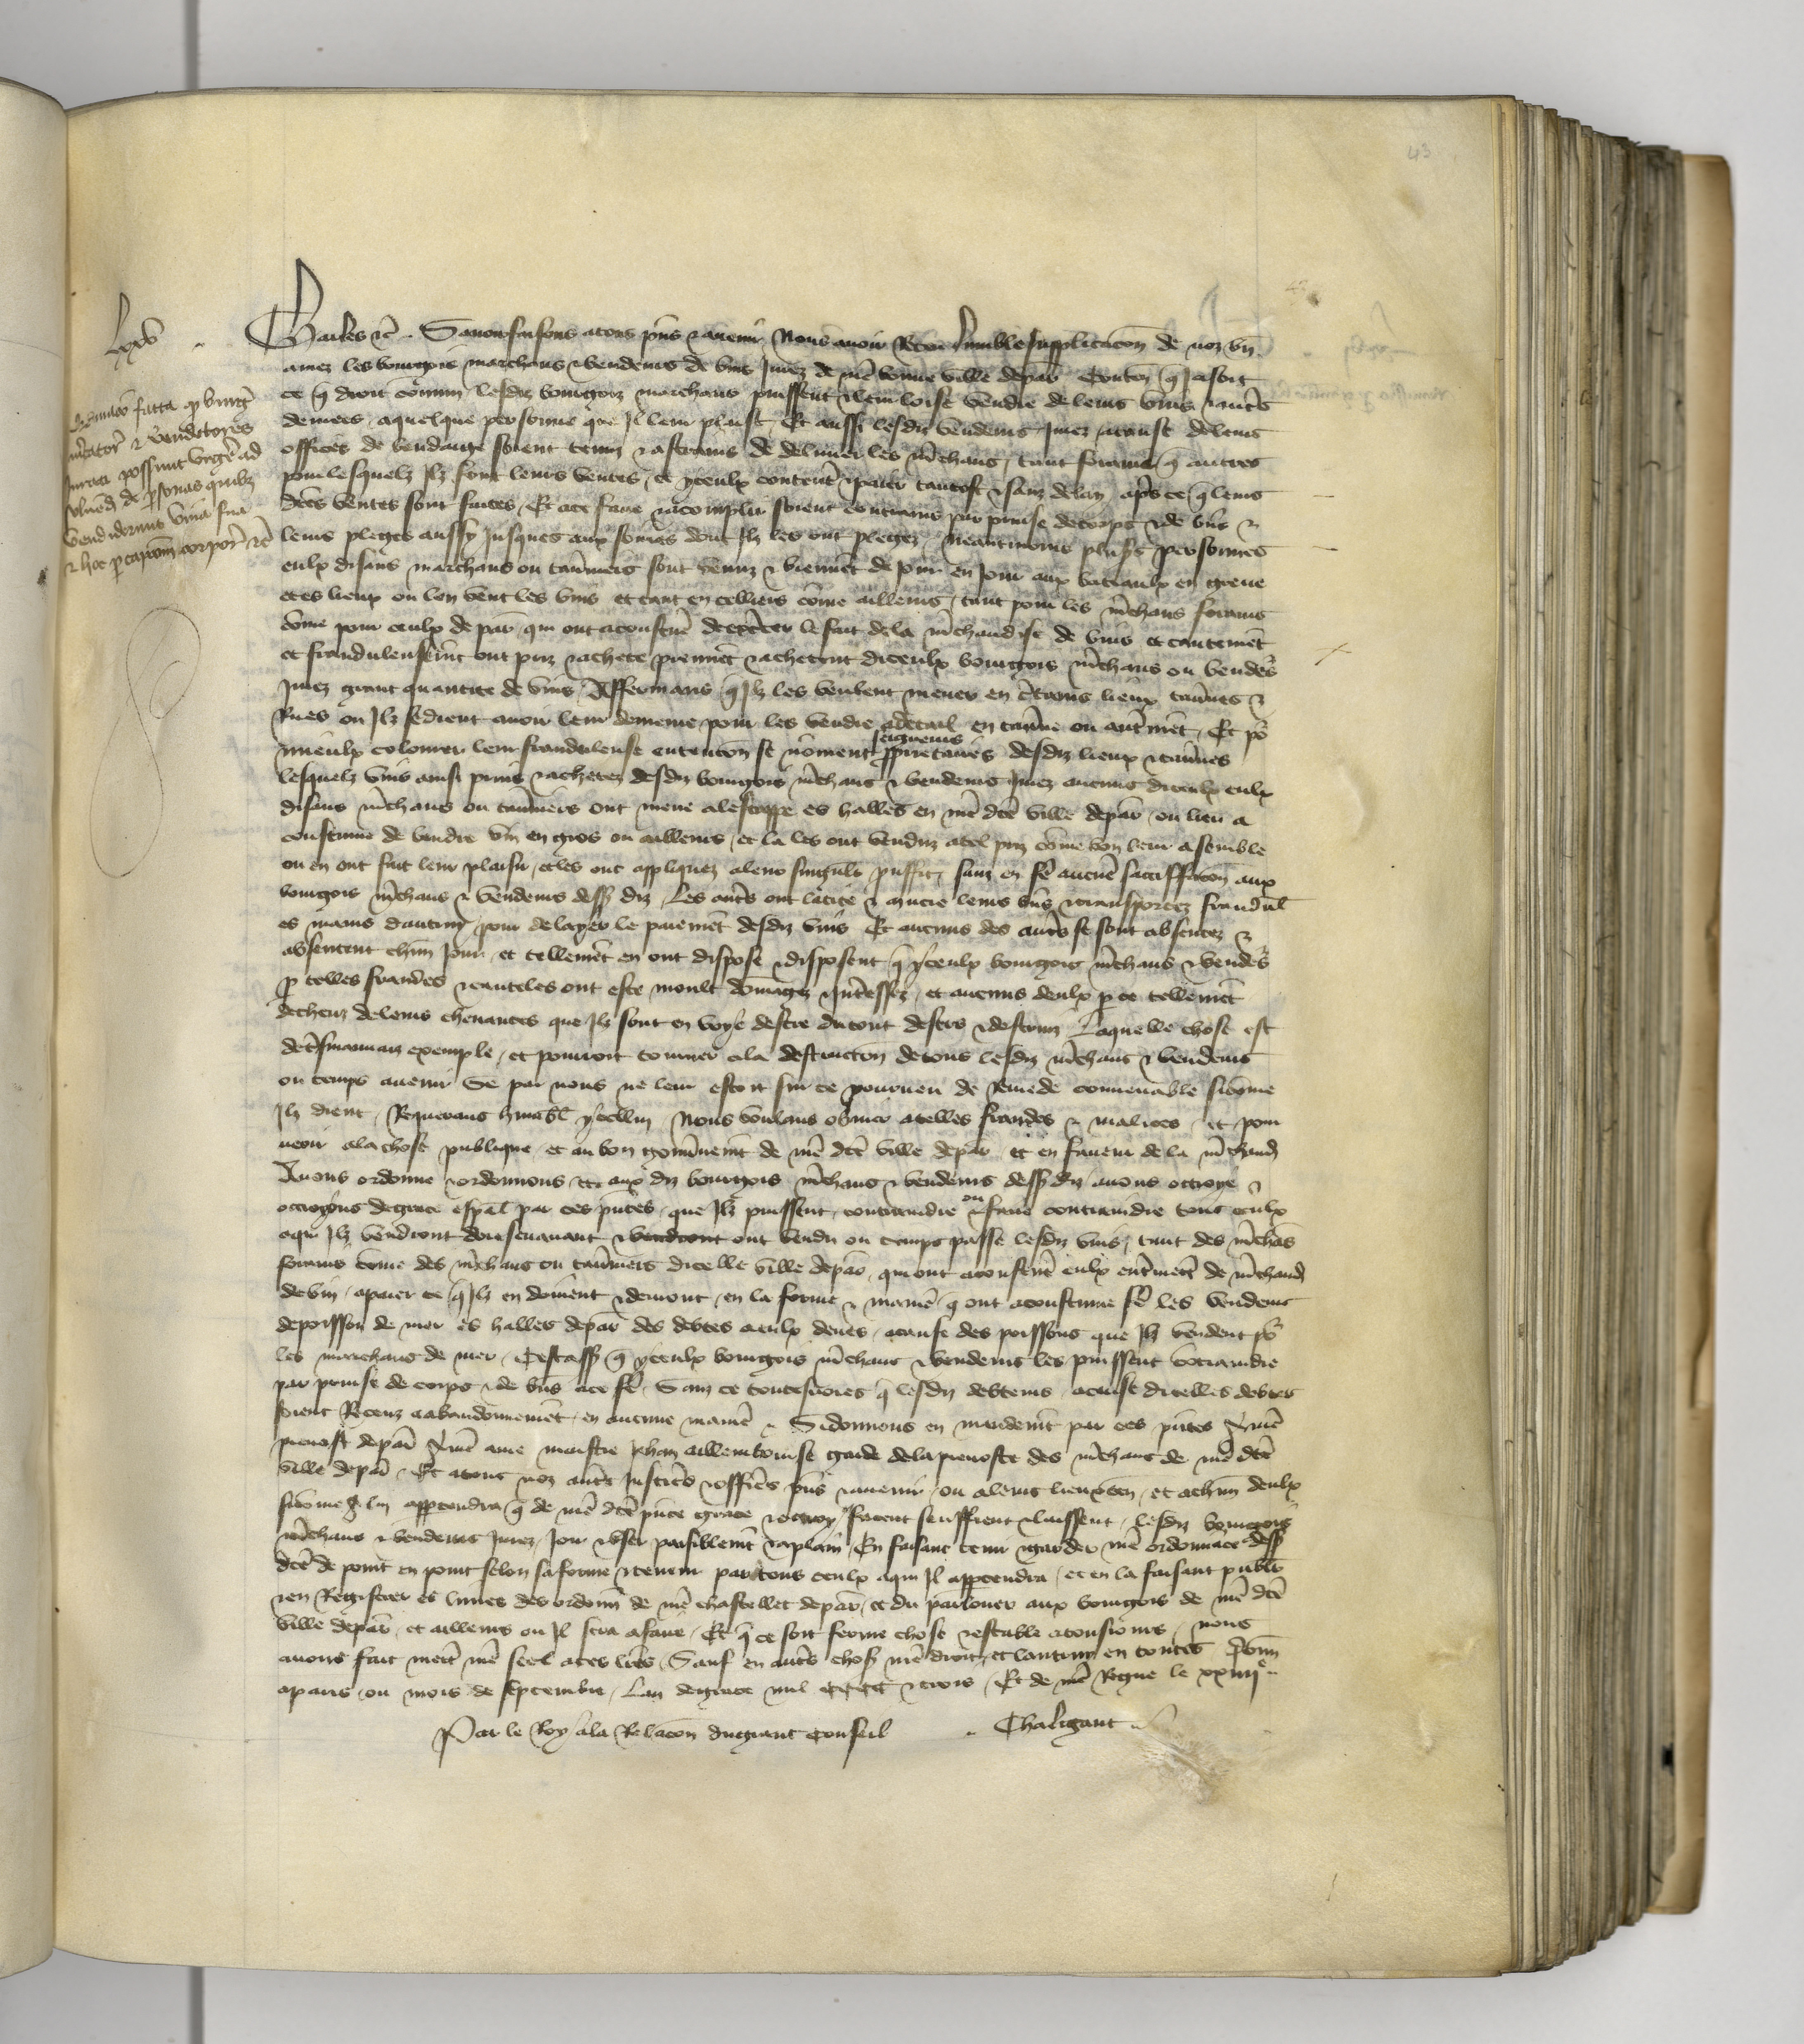 43
lxxv
Ordinacio facta quod burgenses
mercatores et venditores
jurati possint urgere ad
solvendum de personas quibus
vendiderint vina sua
et hoc per capcionem corporum etc
Charles etc. Savoir faisons a tous presens et avenir Nous avoir receu humble supplicacion de noz bien
amez les bourgois marchans et vendeurs de vins jurez de nostre bonne ville de Paris Contenant que jasoit
ce que de droit commun lesdiz bourgois marchans puissent et leur loise vendre de leurs vins et autres
denrees a quelque personne que Il leur plaist Et aussi lesdiz vendeurs jurez a cause de leurs
offices de vendange soient tenuz et astrains de delivrer les marchans tant forains que autres
pour lesquelz Ilz font leurs ventes et yceulx contenter et paier tantost et sanz delay apres ce que leurs
dictes ventes sont faictes Et a ce faire et acomplir soient contrains par prinse de corps et de biens et
leurs pleges aussy jusques aux sommes dont Ilz les ont plegez Neantmoins pluseurs personnes
eulx disans marchans ou taverniers sont venuz et viennent de jour en jour aux bateaulx en greve
et es lieux ou len vent les vins et tant en celliers comme ailleurs tant pour les marchans forains
comme pour ceulx de Paris qui ont acoustumé de exercer le fait de la marchandise de vins et cautement
et fraudulensement ont prins et acheté prennent et achetent diceulx bourgois marchans ou vendeurs
jurez grant quantité de vins Affermans que Ilz les veulent mener en certains lieux tavernes et
Rues ou Ilz se dient avoir leur demeure pour les vendre a detail en taverne ou autrement Et pour
mieulx colourer leur fraudulense entencion se nomment seigneurs proprietaires desdiz lieux et tavernes
lesquelz vins ainsi prins et achetez desdiz bourgois marchans et vendeurs jurez aucuns diceulx eulx
disans marchans ou taverniers ont mené a lestappe es halles en nostre dicte ville de Paris ou lieu a
coustumé de vendre vin en gros ou ailleurs et la les ont venduz a tel pris comme bon leur a semblé
ou en ont fait leur plaisir et les ont appliquez a leurs singuliers prouffiz sanz en faire aucune satisfacion aux
bourgois marchans et vendeurs dessus diz Les autres ont latité et mucié leurs biens et transportez fraudul
es mains dautruy pour delayer le paiement desdiz vins Et aucuns des autres se sont absentez et
absentent chascun jour et tellement en ont disposé et disposent que yceulx bourgois marchans et vendeurs
par telles fraudes et cauteles ont esté moult dommagez et interessez et aucuns deulx par ce tellement
decheuz de leurs chevances que Ilz sont en voye destre du tout desers et destruiz Laquelle chose est
de tres mauvaiz exemple et pourroit tourner a la destruction de tous lesdiz marchans et vendeurs
ou temps avenir Se par nous ne leur estoit sur ce pourveu de Remede convenable sicomme
Ilz dient Requerans humblement ycellui Nous voulans obvier a telles fraudes et malices et pour
veoir a la chose publique et au bon gouvernement de nostre dicte ville de Paris et en faveur de la marchandise
Avons ordonné et ordonnons et aux diz bourgois marchans et vendeurs dessus diz avons octroyé et
octroyons de grace especial par ces presentes que Ilz puissent contraindre ou faire contraindre tous ceulx
a qui Ilz vendront doresenavant et vendront ont vendu ou temps passé lesdiz vins tant des marchans
forains comme des marchans ou taverniers dicelle ville de Paris qui ont acoustumé eulx entremettre de marchandise
de vin a paier ce que Ilz en doivent et devront en la forme et maniere que ont acoustumé faire les vendeurs
de poisson de mer es halles de Paris des debtes a eulx deues a cause des poissons que Ilz vendent pour
les marchans de mer Cest assavoir que yceulx bourgois marchans et vendeurs les puissent contraindre
par prinse de corps et de biens a ce faire Sanz ce toutesvoies que lesdiz debteurs a cause dicelles debtes
soient Receuz a abandonnement en aucune maniere Si donnons en mandement par ces presentes a nostre
prevost de Paris a nostre amé maistre Jehan garde de la prevosté des marchans de nostre dicte
ville de Paris Et a tous noz autres justiciers et officiers presens et avenir ou a leurs lieuxtenans et a chascun deulx
sicomme a lui appartendra que de nostre dicte presente grace et octroy facent seuffrent et laissent lesdiz bourgois
marchans et vendeurs jurez joir et user paisiblement et a plain En faisant tenir et garder nostre ordonnance dessus
dicte de point en point selon sa forme et teneur par tous ceulx a qui Il appartendra et en la faisant publier
et en Registrer es livres des ordonnances de nostre chastellet de Paris et du parlouer aux bourgois de nostre dicte
ville de Paris et ailleurs ou Il sera a faire Et que ce soit ferme chose et estable a tousjours nous
avons fait mettre nostre seel a ces lettres Sauf en autres choses nostre droit et lautruy en toutes Donné
a Paris ou mois de septembre Lan de grace mil cccc et trois Et de nostre Regne le xxiiiie
Par le Roy a la Relacion du grant conseil Chaligaut